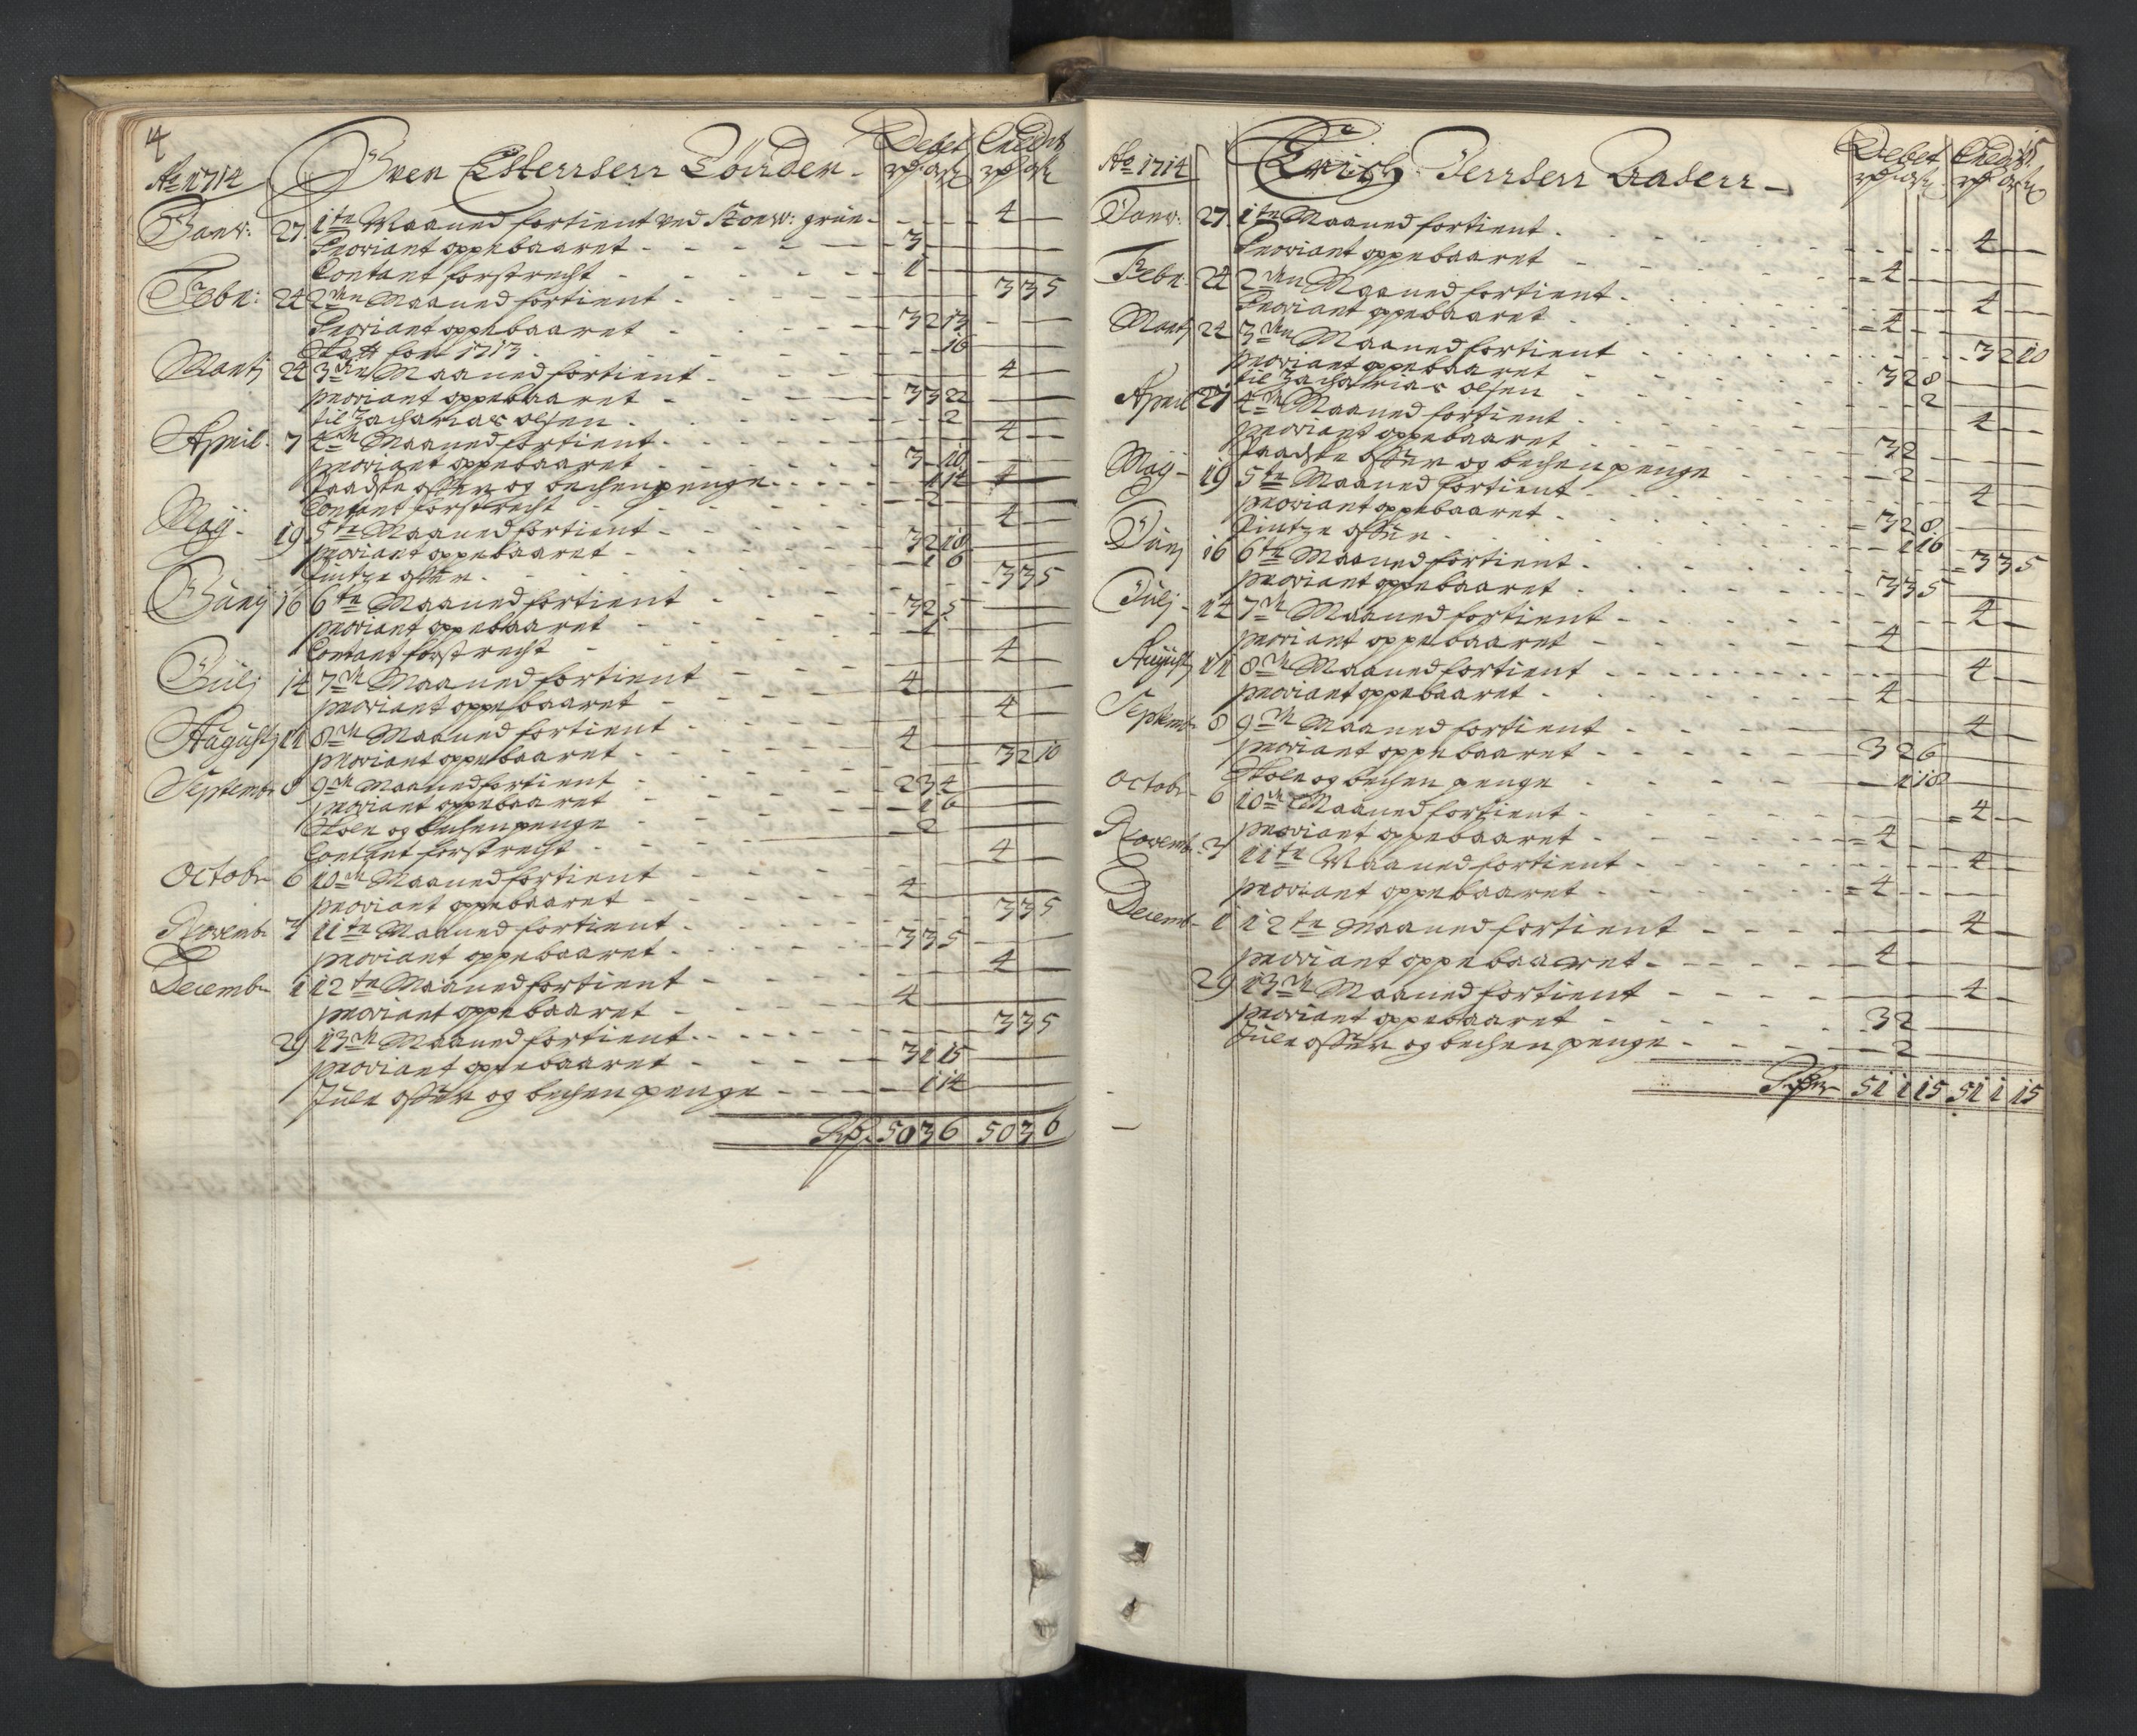 4
Ao 1714 Sven Debet Credit
Janv: 27 1te Maaned fortient ved Konw: grúe 4
Proviant oppebaaret 3
Contant forstrecht 1
Febr: 24 2den Maaned fortient 3 3 5
Proviant oppebaaret 3 2 13
Skatt for 1713 16
Martj 24 3den Maaned fortient 4
proviant oppebaaret 3 3 22
til Zacharias olsen 2
April 7 4de Maaned fortient 4
proviant oppebaaret 3 10
Paaske offer og bechenpenge 1 14 4
Contant forstrecht 2
Maij 19 5te Maaned fortient 4
proviant oppebaaret 3 2 18
Pintze offer 1 6
Júnij 16 6te Maaned fortient 3 3 5
proviant oppebaaret 3 2 5
Contant forstrecht 1
Júlj 14 7de Maaned fortient 4
proviant oppebaaret 4
Aúgústj 11 8de Maaned fortient 4
proviant oppebaaret 4
Septembr 8 9de Maaned fortient 3 2 10
proviant oppebaaret 2 3 4
Skole og bechenpenge 1 6
Contant forstrecht 2
Octobr 6 10de Maaned fortient 4
proviant oppebaaret 4
Novembr 3 11te Maaned fortient 3 3 5
proviant oppebaaret 3 3 5
Decembr 1 12te Maaned fortient 4
proviant oppebaaret 4
29 13de Maaned fortient 3 3 5
proviant oppebaaret 3 1 15
Júle offer og bechenpenge 1 14
Rp. 50 3 6 50 3 6
15
Ao 1714 Erich Debet Credit
Janv: 27 1te Maaned fortient 4
Proviant oppebaaret 4
Febr: 24 2den Maaned fortient 4
Proviant oppebaaret 4
Martj 24 3den Maaned fortient 3 2 10
proviant oppebaaret 3 2 8
til Zacharias olsen 2
April 27 4de Maaned fortient 4
proviant oppebaaret 3 2
Paaske offer og bechenpenge 2
Maij 19 5te Maaned fortient 4
proviant oppebaaret 3 2 8
Pintze offer 1 16
Júnj 16 6te Maaned fortient 3 3 5
proviant oppebaaret 3 3 5
Júlj 14 7de Maaned fortient 4
proviant oppebaaret 4
Aúgústj 11 8de Maaned fortient 4
proviant oppebaaret 4
Septembr 8 9de Maaned fortient 4
proviant oppebaaret 3 2 6
Skole og bechen penge 1 18
Octobr 6 10de Maaned fortient 4
proviant oppebaaret 4
Novembr 3 11te Maaned fortient 4
proviant oppebaaret 4
Decembr 1 12te Maaned fortient 4
proviant oppebaaret 4
29 13de Maaned fortient 4
proviant oppebaaret 3 2
Júle offer og bechenpenge 2
51 1 15 51 1 15